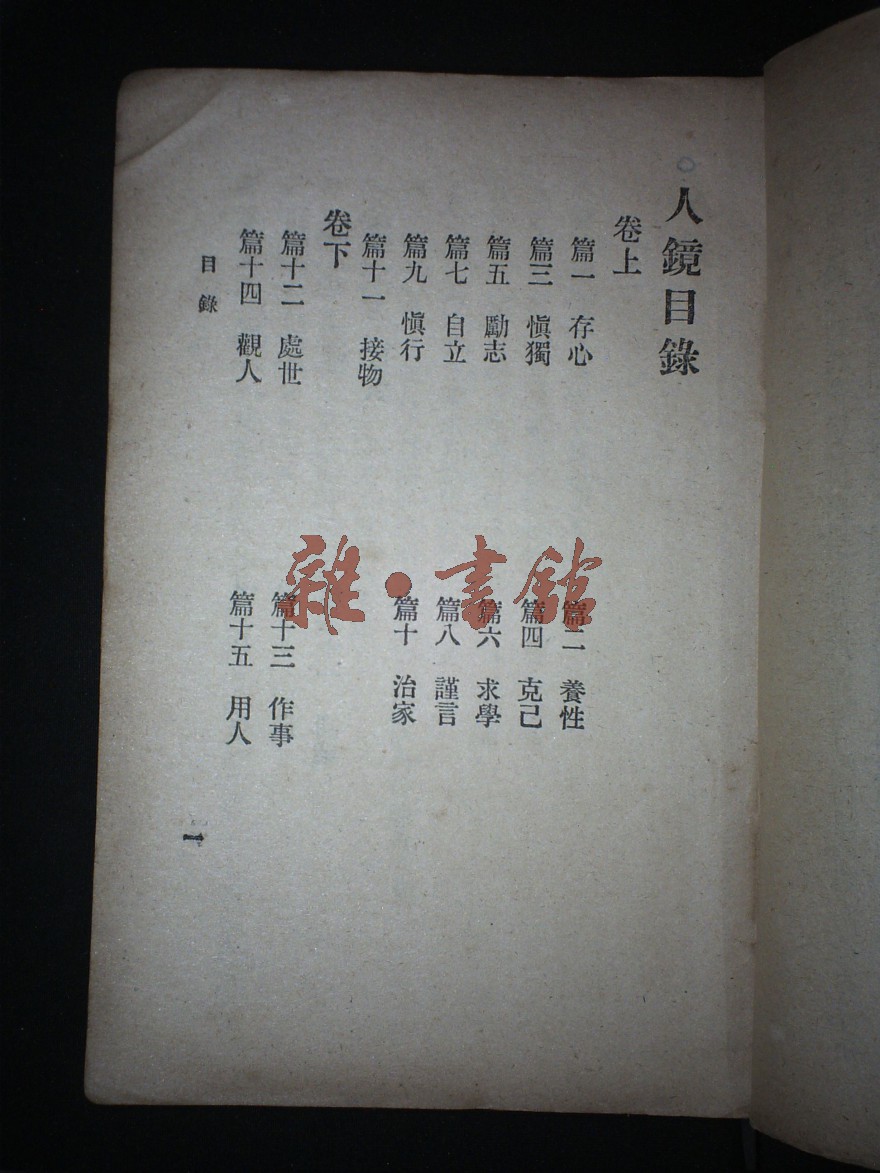 人鏡目錄
卷上
篇一 存心
篇二 養性
篇三 愼獨
篇四 克己
篇五 勵志
篇六 求學
篇七 自立
篇八 謹言
篇九 愼行
篇十 治家
篇十一 接物
卷下
篇十二 處世
篇十三 作事
篇十四 觀人
篇十五 用人
目錄
一
雜·書館